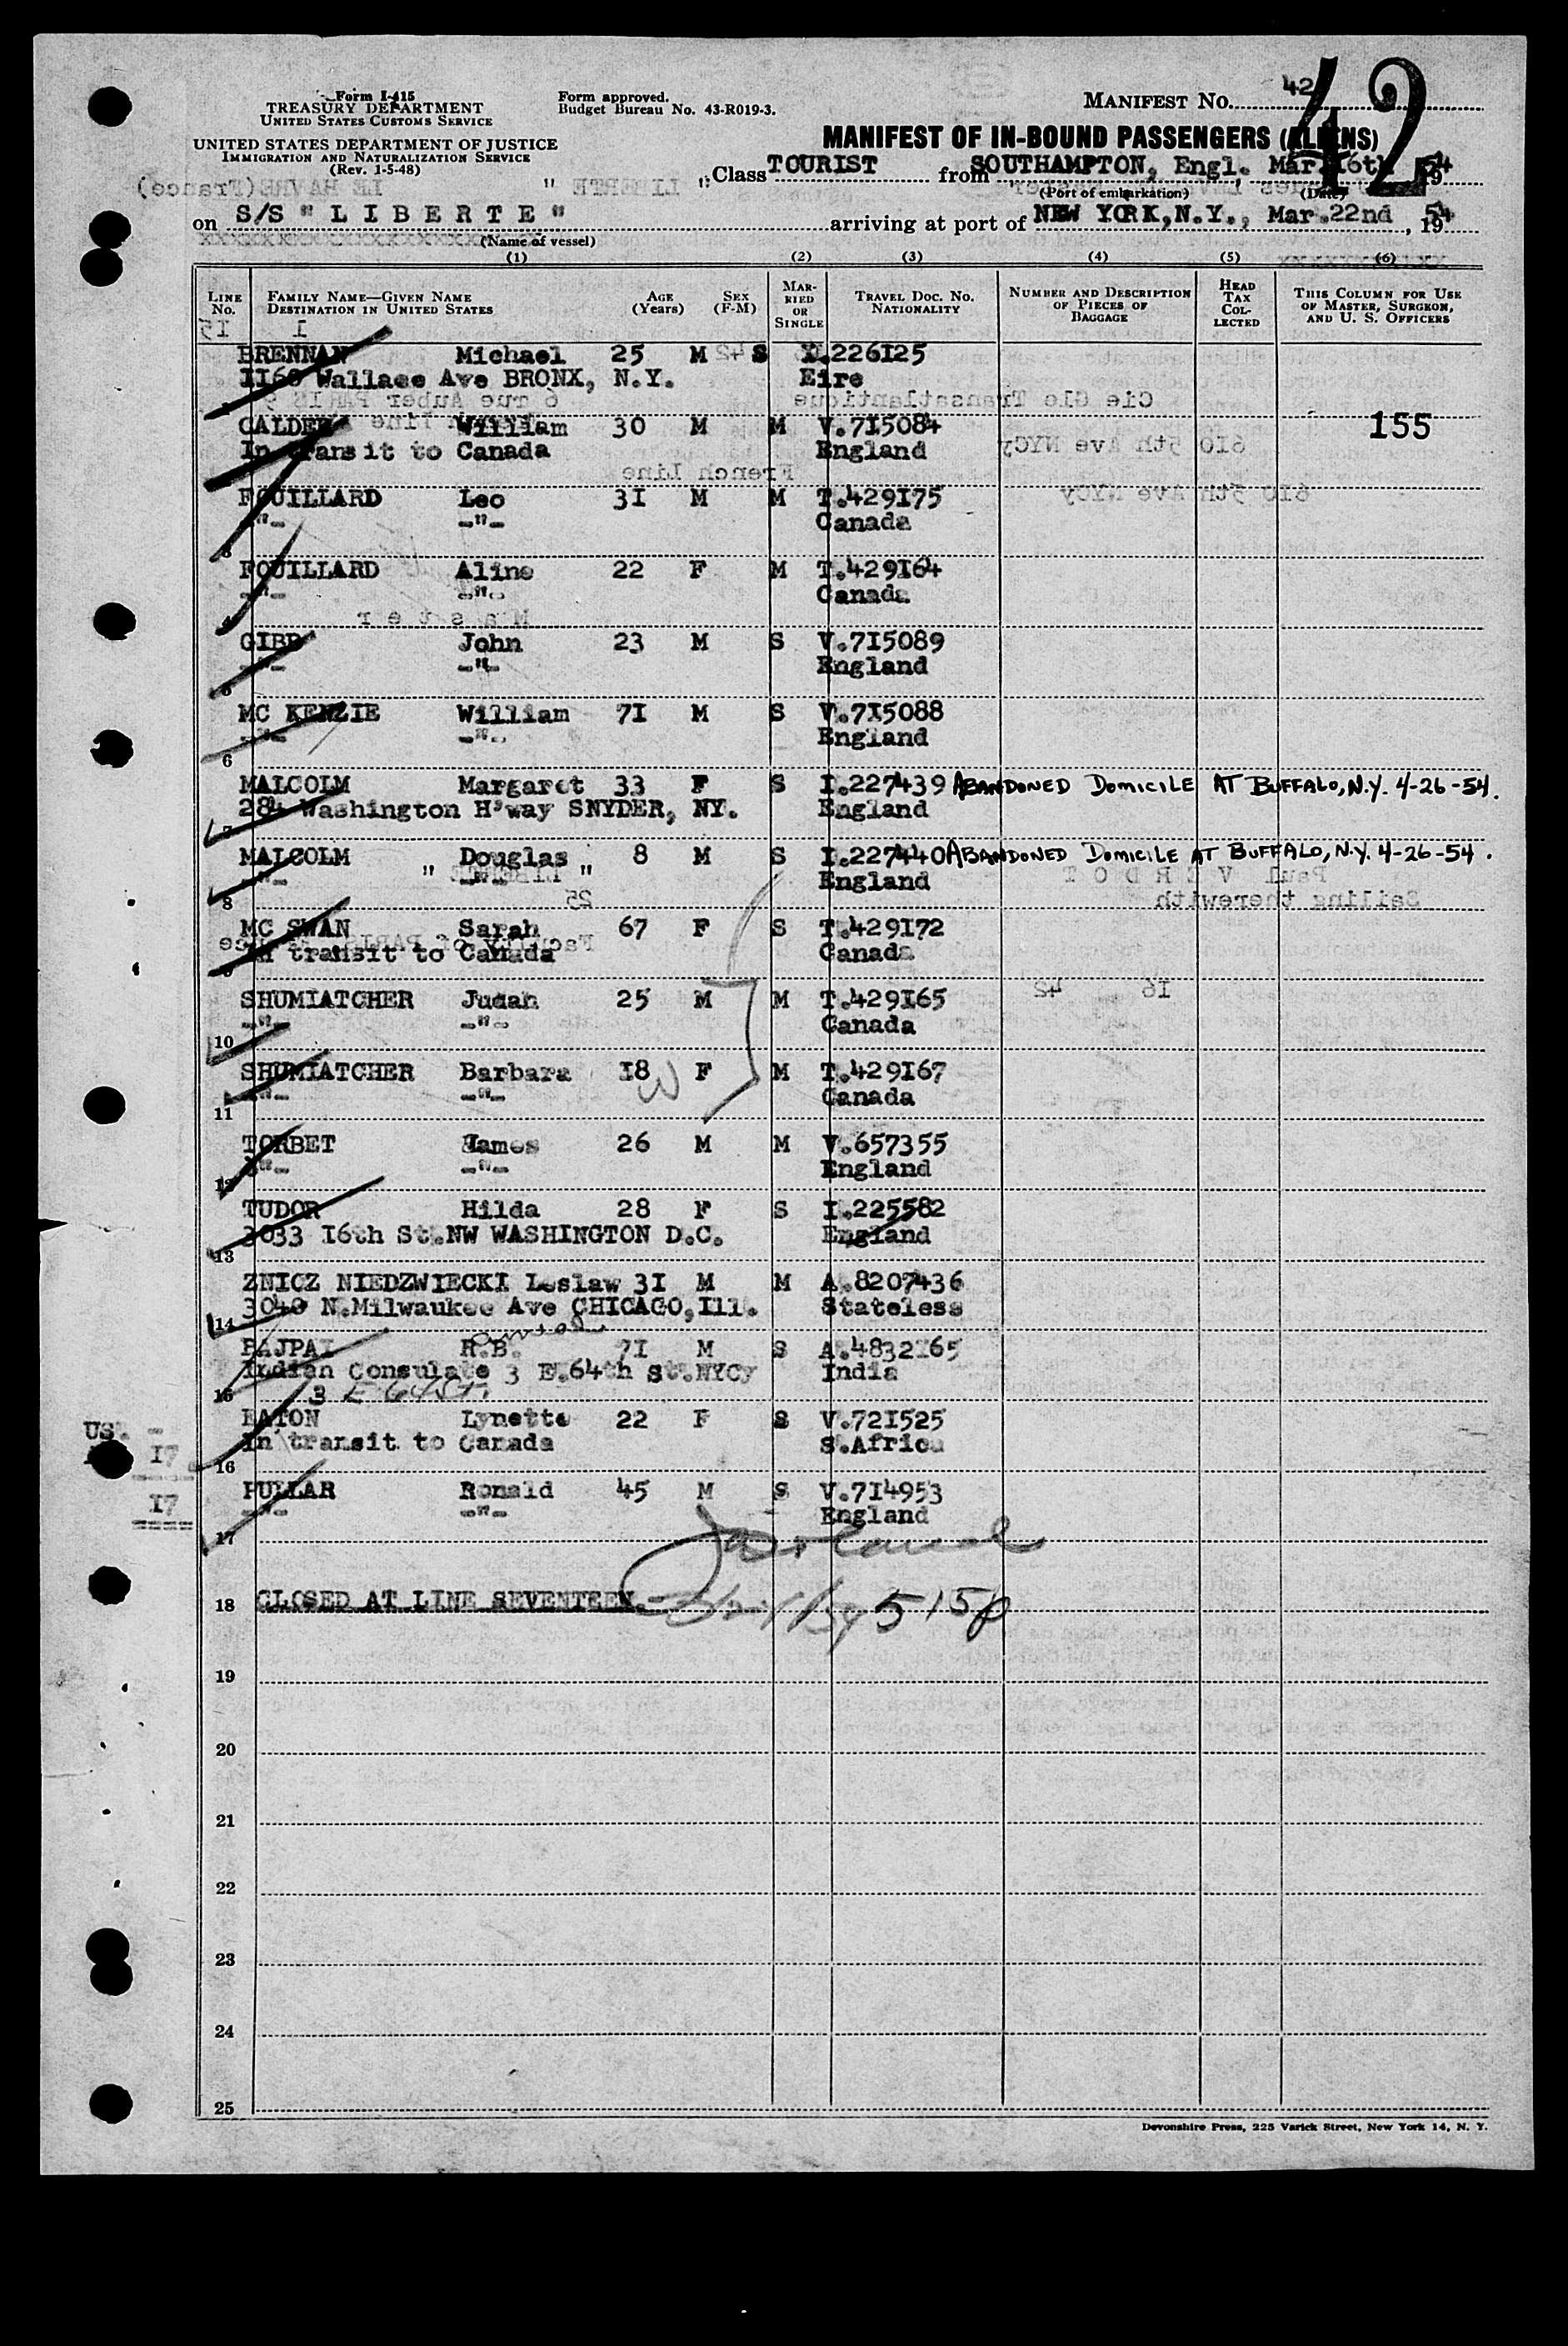 Form I-415
TREASURY DEPARTMENT
UNITED STATES CUSTOMS SERVICE
UNITED STATES DEPARTMENT OF JUSTICE
IMMIGRATION AND NATURALIZATION SERVICE
(Rev. 1-5-48)
Form approved.
Budget Bureau No. 43-R019-3.
MANIFEST No. 42
42
MANIFEST OF IN-BOUND PASSENGERS (ALIENS)
Class TOURIST from SOUTHAMPTON, Engl. Mar 16th, 1954
(Port of embarkation) (Date)
on S/S "LIBERTE" arriving at port of NEW YORK,N.Y., Mar.22nd, 1954
(Name of vessel)
(1) (2) (3) (4) (5) (6)
LINE No. FAMILY NAME—GIVEN NAME DESTINATION IN UNITED STATES AGE (Years) SEX (F-M) MARRIED OR SINGLE TRAVEL DOC. No. NATIONALITY NUMBER AND DESCRIPTION OF PIECES OF BAGGAGE HEAD TAX COLLECTED THIS COLUMN FOR USE OF MASTER, SURGEON, AND U. S. OFFICERS
BRENNAN Michael 25 M S 226125
1160 Wallace Ave BRONX, N.Y. Eire
CALDER William 30 M M V.715084 155
In transit to Canada England
3 FOUILLARD Leo 31 M M T.429175
-"- -"- Canada
4 FOUILLARD Aline 22 F M T.429164
-"- -"- Canada
5 GIBB John 23 M S V.715089
-"- -"- England
6 MC KENZIE William 71 M S V.715088
-"- -"- England
7 MALCOLM Margaret 33 F S I.227439 ABANDONED DOMICILE AT BUFFALO, N.Y. 4-26-54.
284 Washington H'way SNYDER, NY. England
8 MALCOLM Douglas 8 M S I.227440 ABANDONED DOMICILE AT BUFFALO, N.Y. 4-26-54.
-"- -"- England
9 MC SWAN Sarah 67 F S T.429172
In transit to Canada Canada
10 SHUMIATCHER Judah 25 M M T.429165
-"- -"- Canada
11 SHUMIATCHER Barbara 18 F M T.429167
-"- -"- Canada
12 TORBET James 26 M M V.657355
-"- -"- England
13 TUDOR Hilda 28 F S I.225582
3033 16th St.NW WASHINGTON D.C. England
14 ZNICZ NIEDZWIECKI Leslaw 31 M M A.8207436
3040 N.Milwaukee Ave CHICAGO,Ill. Stateless
15 BAJPAI R.B. 71 M S A.4832165
Indian Consulate 3 E.64th St.NYCy India
3 E 64 St.
16 EATON Lynette 22 F S V.721525
In transit to Canada S.Africa
17 PULLAR Ronald 45 M S V.714953
-"- -"- England
US. -
17
17
18 CLOSED AT LINE SEVENTEEN.-
5 15p
19
20
21
22
23
24
25
Devonshire Press, 225 Varick Street, New York 14, N. Y.